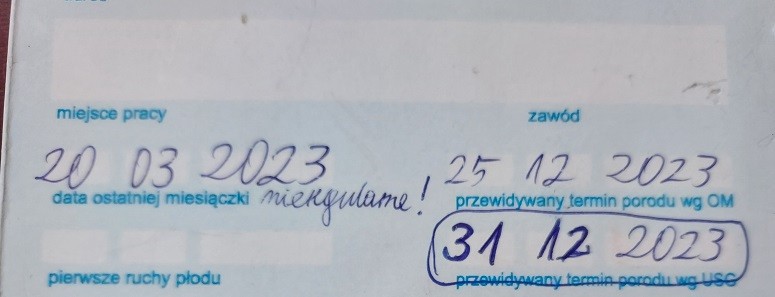 miejsce pracy zawód
20 03 2023 25 12 2023
data ostatniej miesiączki nieregularne! przewidywany termin porodu wg OM
31 12 2023
pierwsze ruchy płodu przewidywany termin porodu wg USG